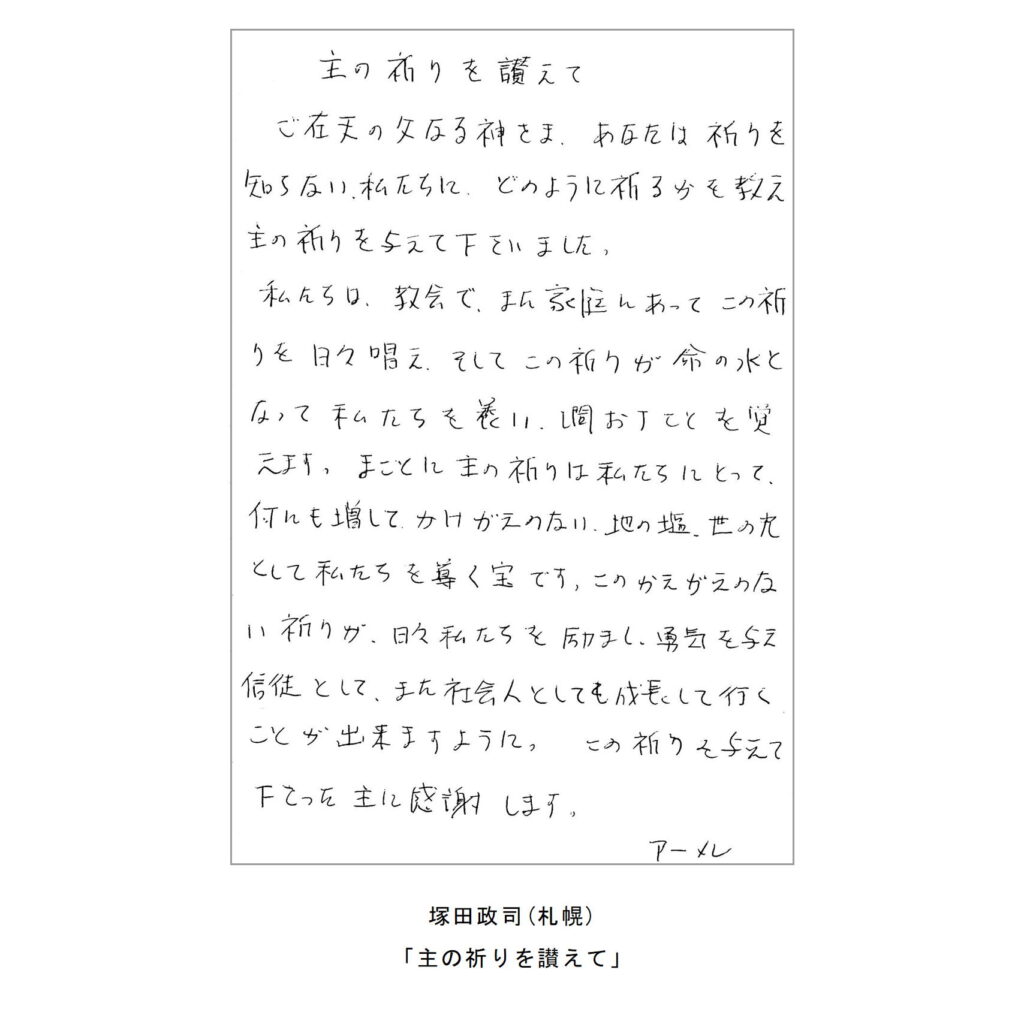 主の祈りを讃えて
ご在天の父なる神さま、あなたは祈りを
知らない、私たちに、どのように祈るかを教え
主の祈りを与えて下さいました。
私たちは、教会で、また家庭にあってこの祈
りを日々唱え、そしてこの祈りが命の水と
なって私たちを養い、潤おすことを覚
えます。まことに主の祈りは私たちにとって、
何にも増して、かけがえのない、地の塩、世の光
として私たちを導く宝です。このかえがえのな
い祈りが、日々私たちを励まし、勇気を与え
信徒として、また社会人としても成長して行く
ことが出来ますように。この祈りを与えて
下さった主に感謝します。
アーメン
塚田政司(札幌)
「主の祈りを讃えて」